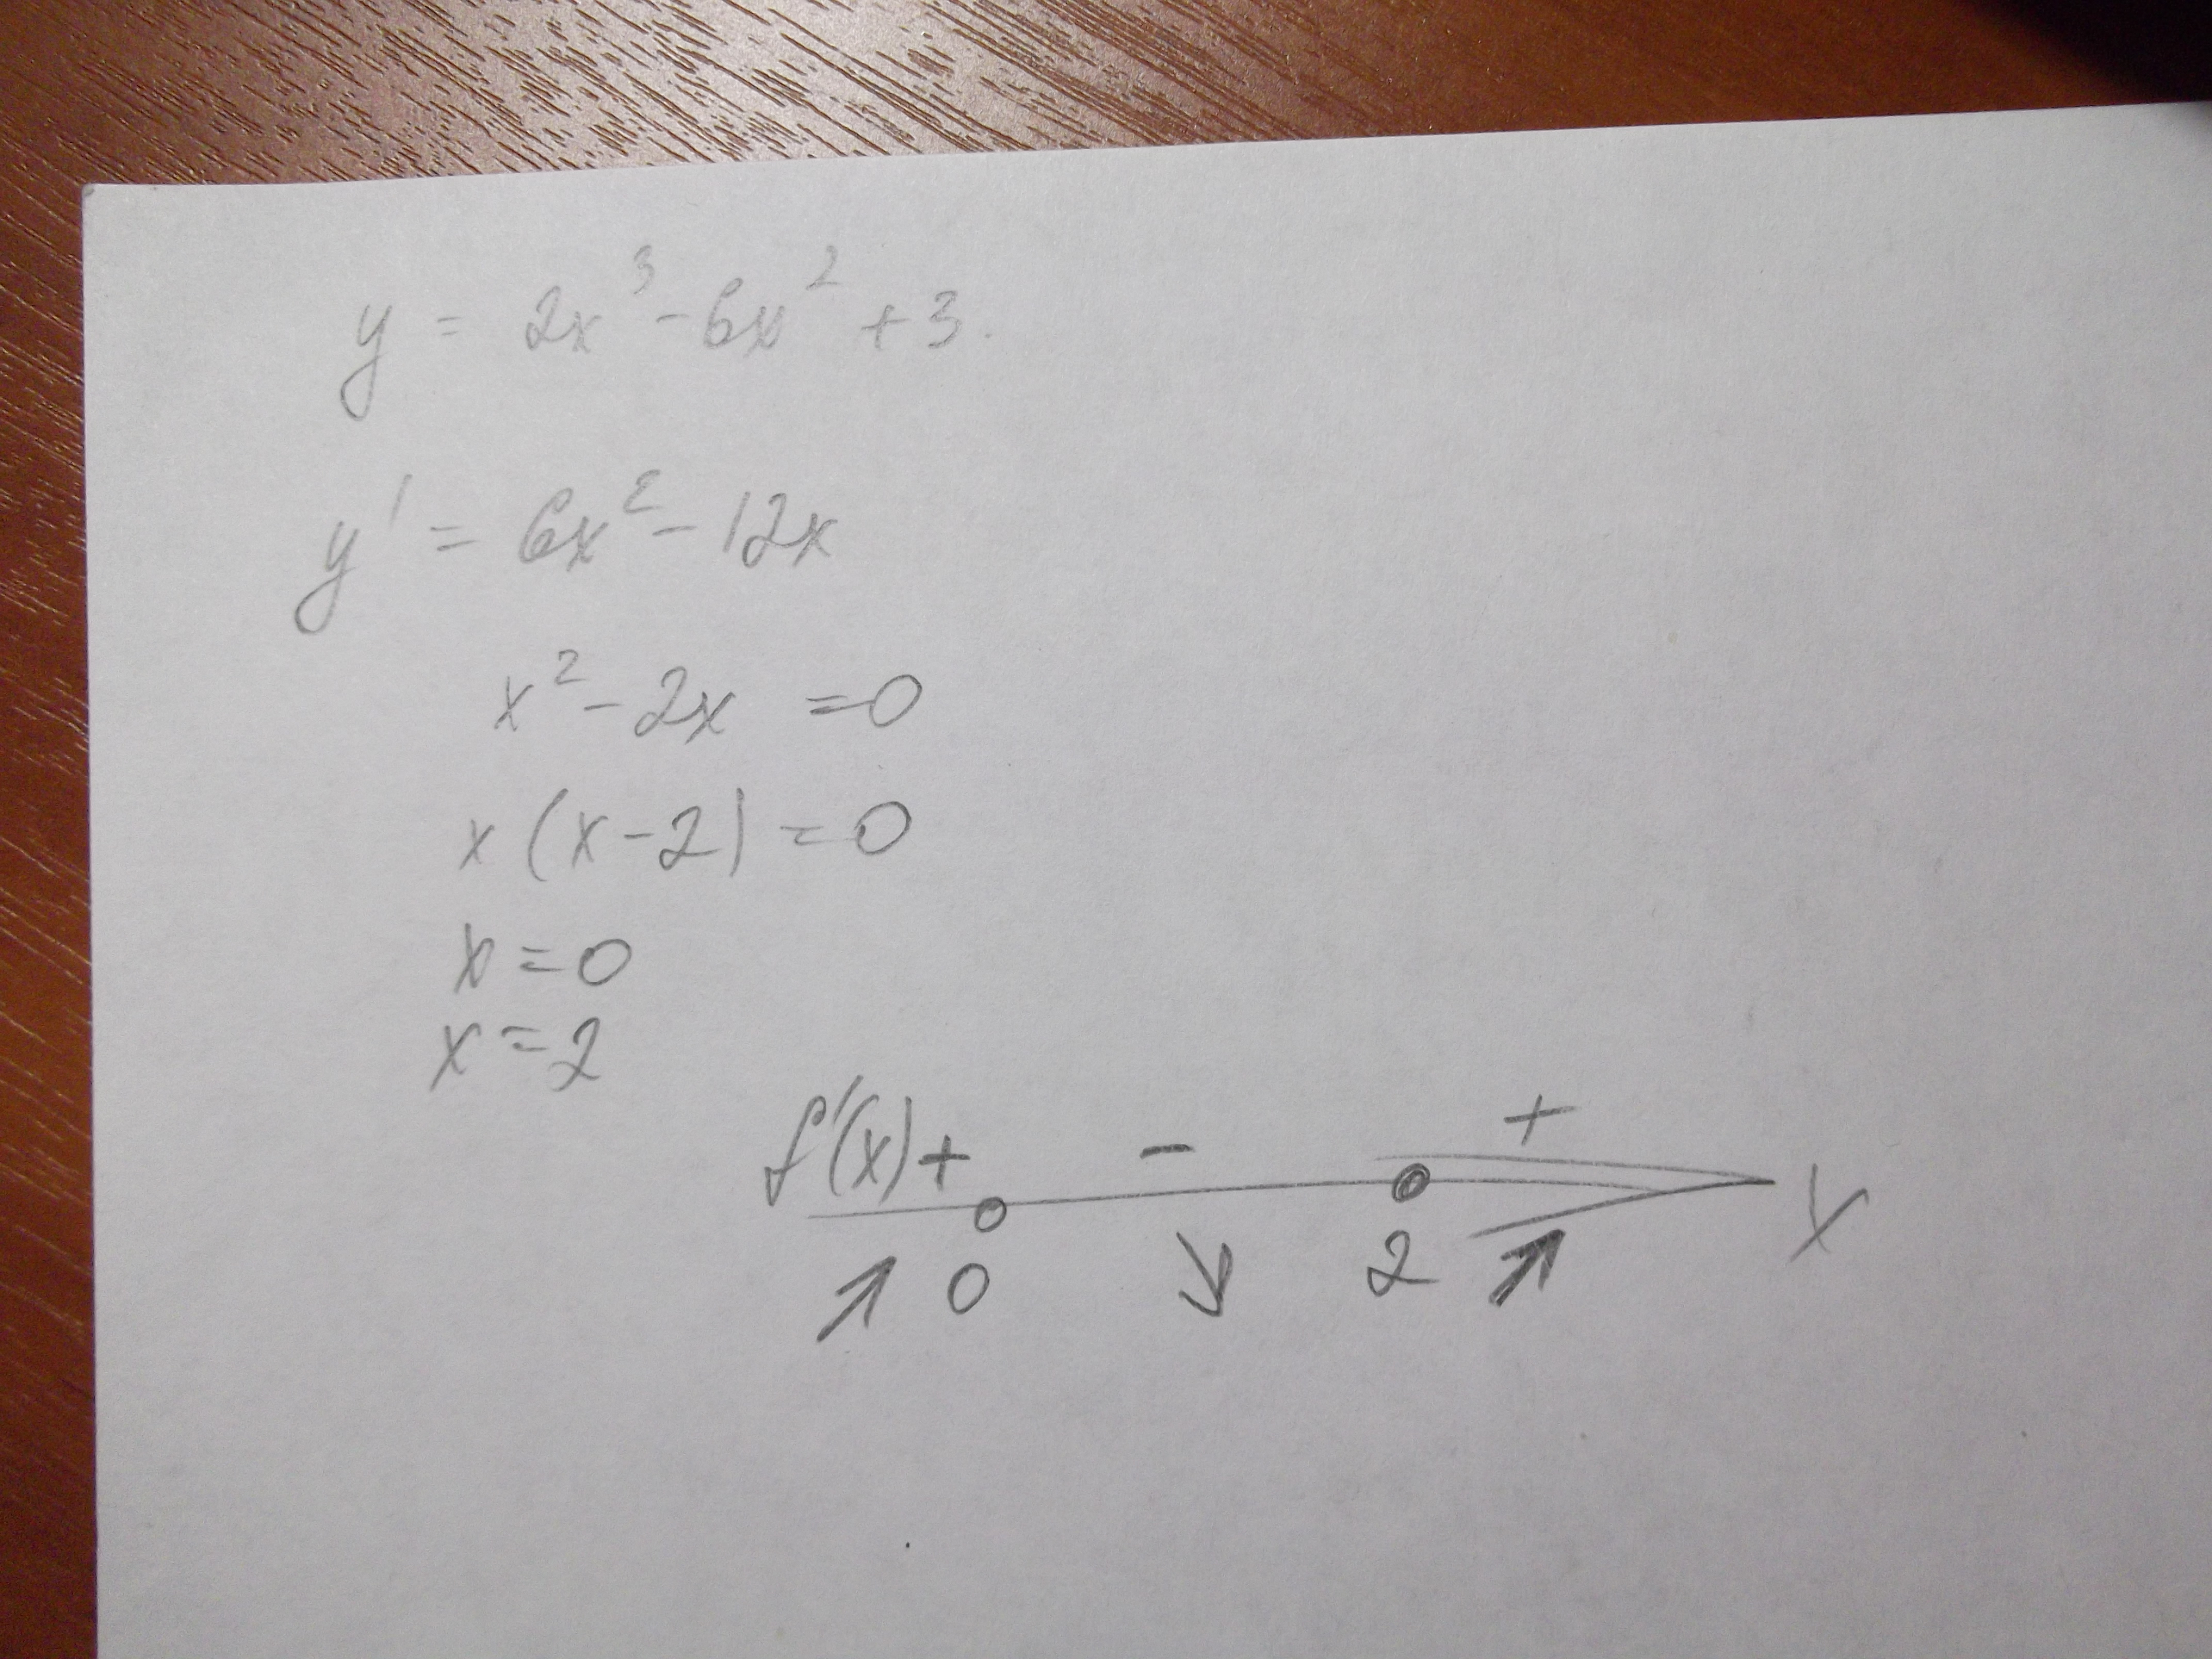 y = 2x³ - 6x² + 3.
y' = 6x² - 12x
x² - 2x = 0
x (x - 2) = 0
x = 0
x = 2
f'(x) + - +
↗ 0 ↘ 2 ↗ x